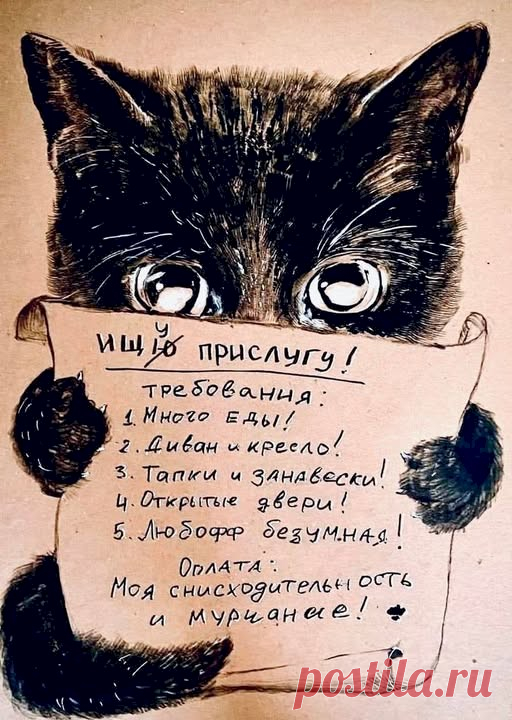 ищую прислугу!
требования:
1. Много еды!
2. Диван и кресло!
3. Тапки и занавески!
4. Открытые двери!
5. Любофф безумная!
Оплата:
Моя снисходительность
и мурчание!
postila.ru